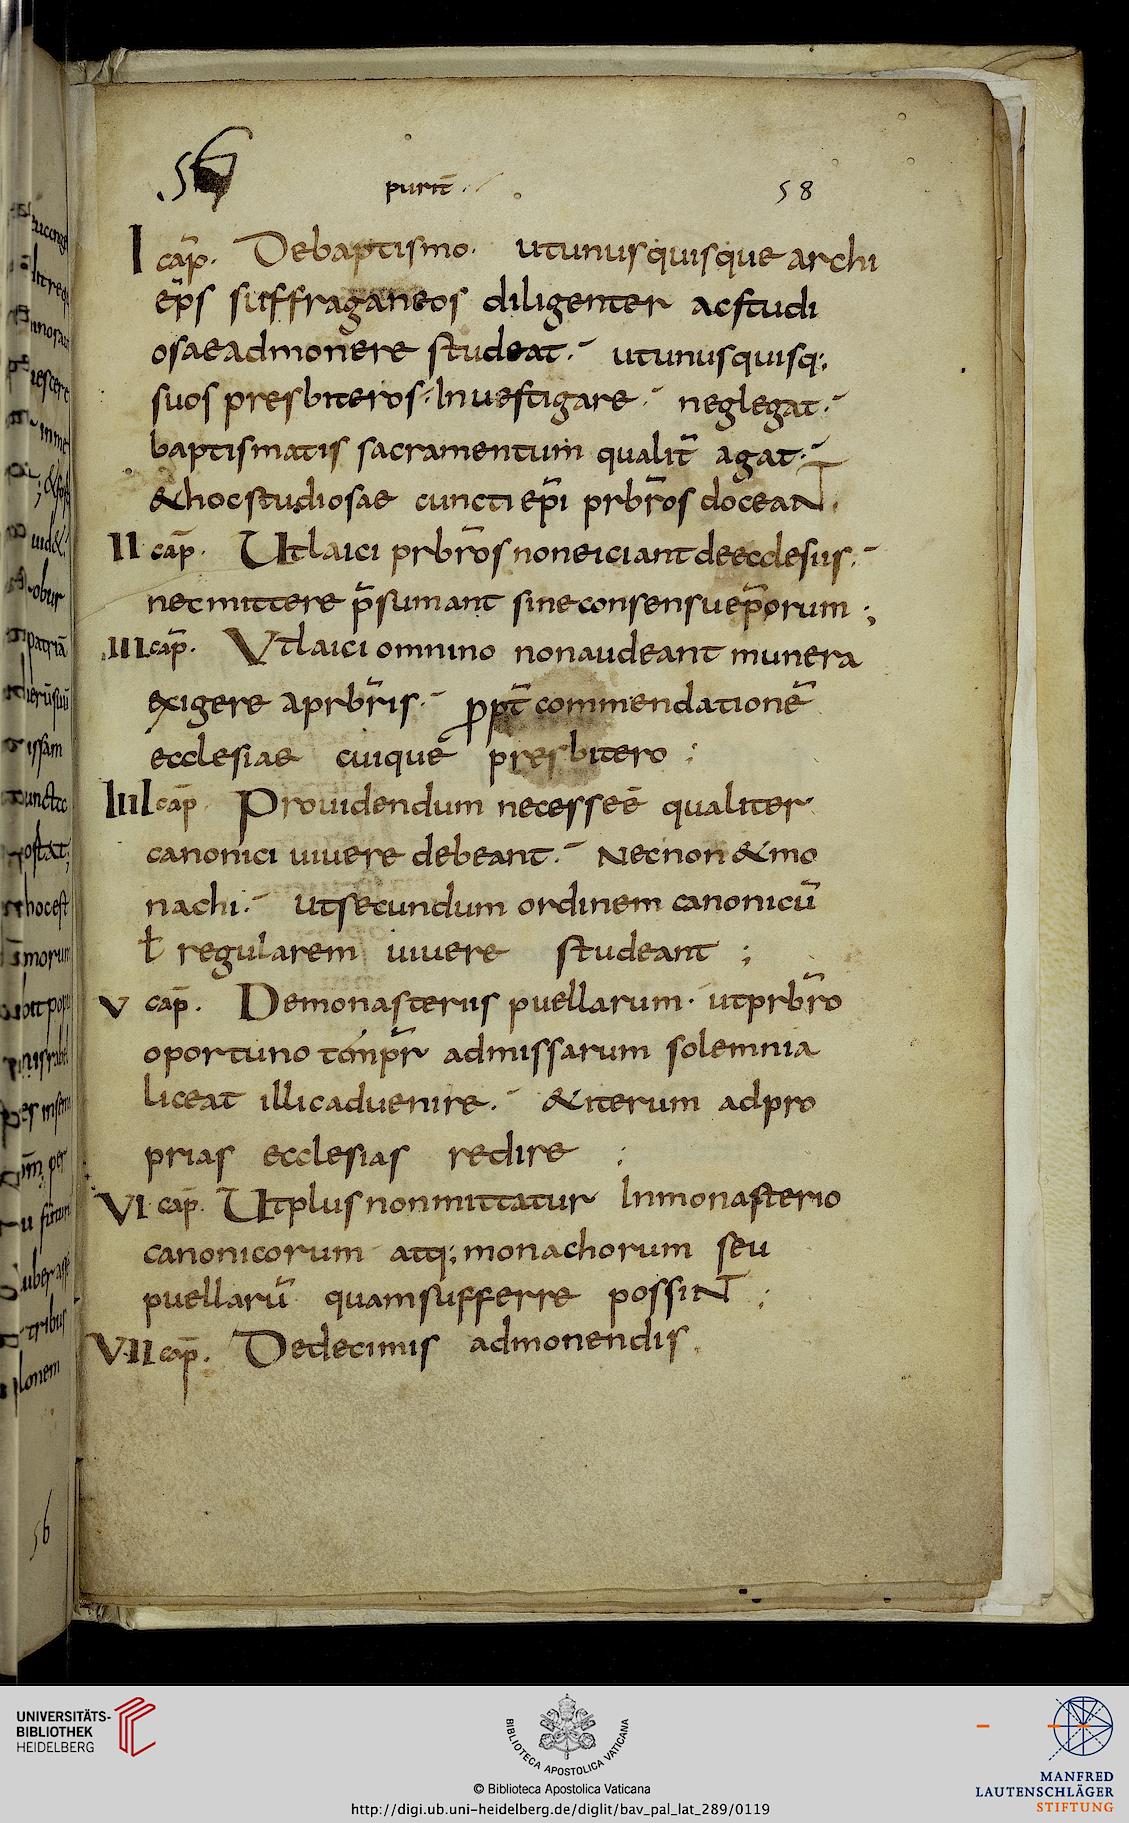 56 purit̄ 58
I cap̄. Debaptismo. utunusquisque archi
ep̄s suffraganeos diligenter acstudi
osaeadmonere studeat. utunusquisq;
suos presbiteros. Inuestigare neglegat.
baptismatis sacramentum qualit̄ agat.
&hocstudiosae cuncti ep̄i prbr̄os doceaNT.
II cap̄. Utlaici prbr̄os noneiciant deecclesiis.
necmittere p̄sumant sineconsensuep̄orum ;
III cap̄. Vtlaici omnino nonaudeant munera
exigere aprbr̄is. ꝓpt̄ commendationē
ecclesiae cuique presbitero ;
IIII cap̄ Prouidendum necesseē qualiter
canonici uiuere debeant. Necnon &mo
nachi. utsecundum ordinem canonicū
ł regularem uiuere studeant ;
V cap̄. Demonasteriis puellarum. utprbr̄o
oportuno temp̄r admissarum solemnia
liceat illicaduenire. &iterum adpro
prias ecclesias redire ;
VI cap̄. Utplus nonmittatur Inmonasterio
canonicorum atq; monachorum seu
puellarū quamsufferre possiNT ;
VII cap̄. Dedecimis admonendis.
56
UNIVERSITÄTS-
BIBLIOTHEK
HEIDELBERG
BIBLIOTECA APOSTOLICA VATICANA
© Biblioteca Apostolica Vaticana
http://digi.ub.uni-heidelberg.de/diglit/bav_pal_lat_289/0119
MANFRED
LAUTENSCHLÄGER
STIFTUNG